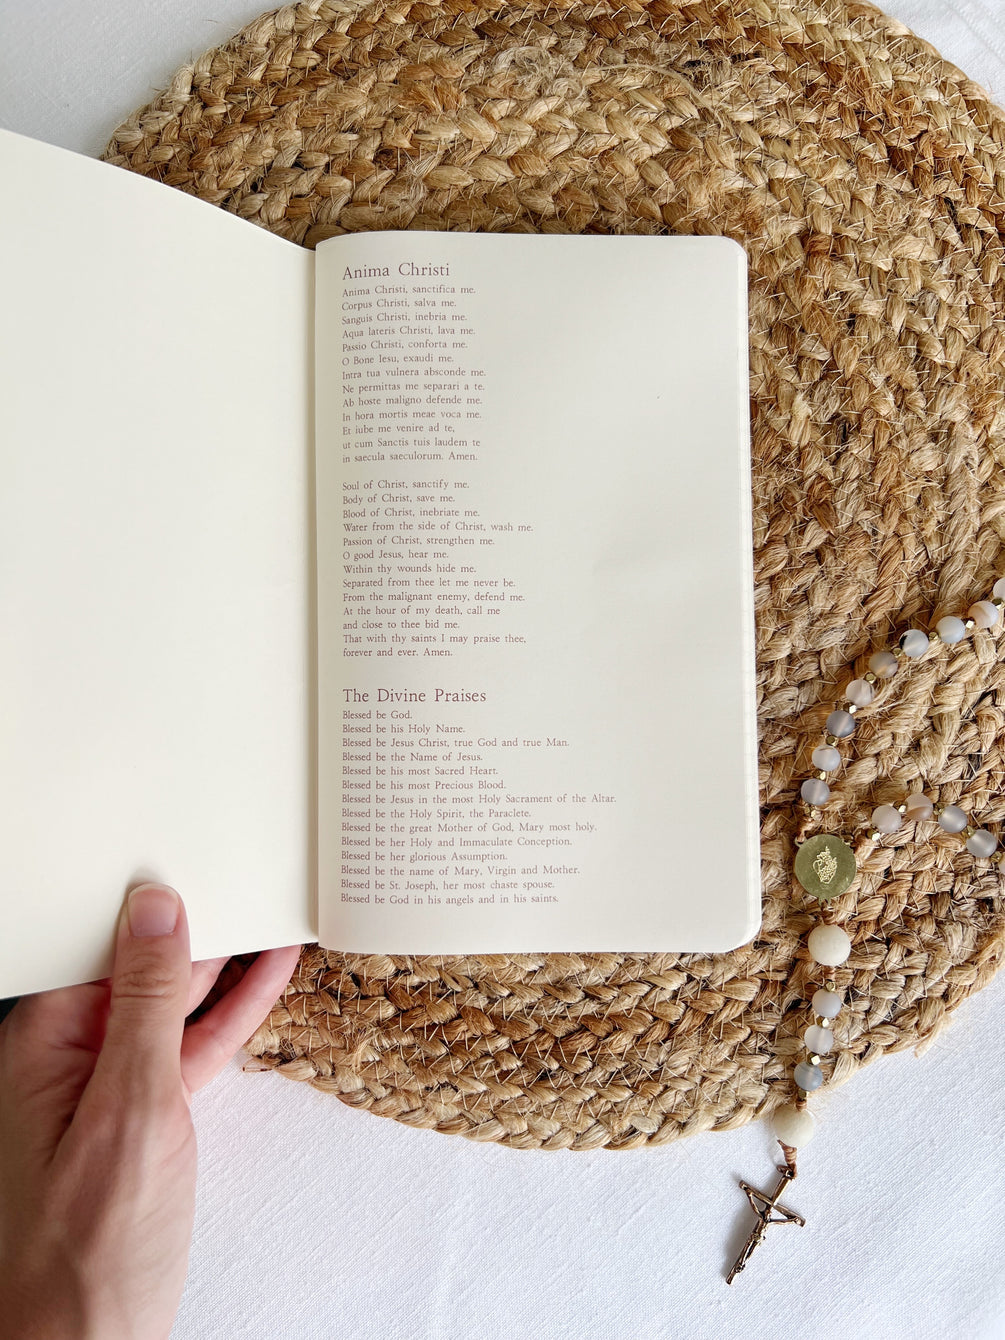 Anima Christi
Anima Christi, sanctifica me.
Corpus Christi, salva me.
Sanguis Christi, inebria me.
Aqua lateris Christi, lava me.
Passio Christi, conforta me.
O Bone Iesu, exaudi me.
Intra tua vulnera absconde me.
Ne permittas me separari a te.
Ab hoste maligno defende me.
In hora mortis meae voca me.
Et iube me venire ad te,
ut cum Sanctis tuis laudem te
in saecula saeculorum. Amen.
Soul of Christ, sanctify me.
Body of Christ, save me.
Blood of Christ, inebriate me.
Water from the side of Christ, wash me.
Passion of Christ, strengthen me.
O good Jesus, hear me.
Within thy wounds hide me.
Separated from thee let me never be.
From the malignant enemy, defend me.
At the hour of my death, call me
and close to thee bid me.
That with thy saints I may praise thee,
forever and ever. Amen.
The Divine Praises
Blessed be God.
Blessed be his Holy Name.
Blessed be Jesus Christ, true God and true Man.
Blessed be the Name of Jesus.
Blessed be his most Sacred Heart.
Blessed be his most Precious Blood.
Blessed be Jesus in the most Holy Sacrament of the Altar.
Blessed be the Holy Spirit, the Paraclete.
Blessed be the great Mother of God, Mary most holy.
Blessed be her Holy and Immaculate Conception.
Blessed be her glorious Assumption.
Blessed be the name of Mary, Virgin and Mother.
Blessed be St. Joseph, her most chaste spouse.
Blessed be God in his angels and in his saints.